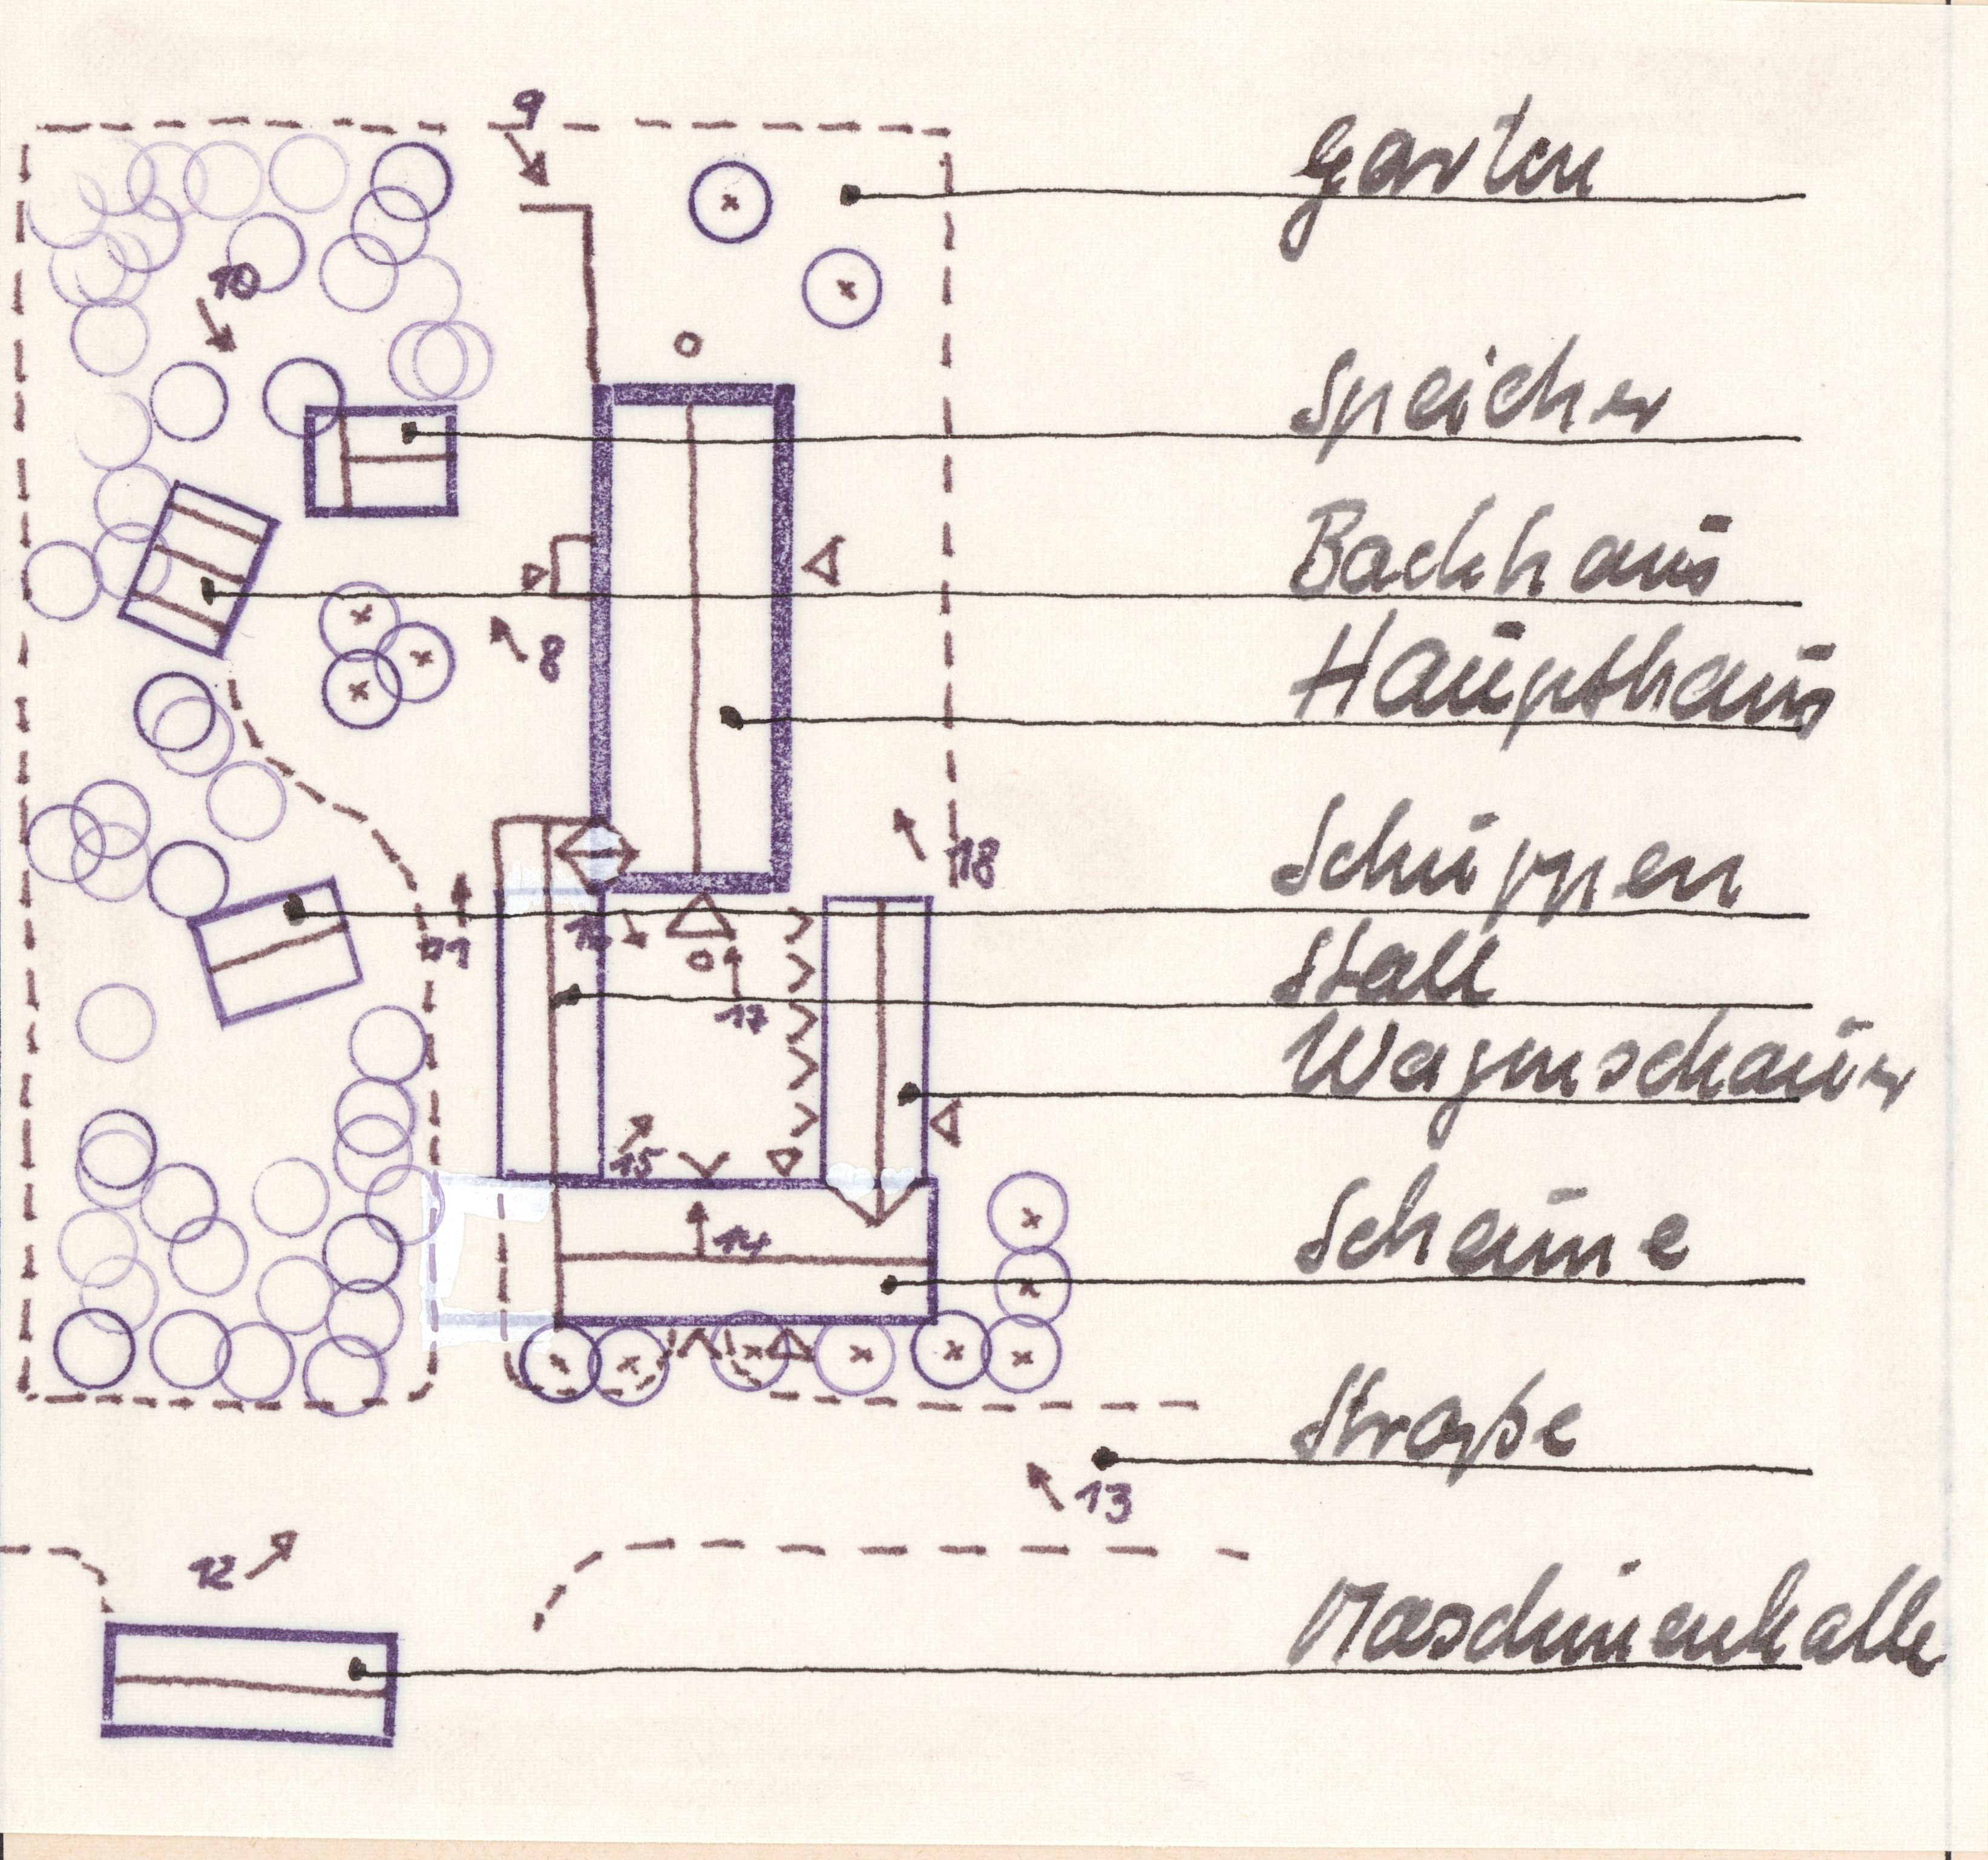 9
Garten
10
Speicher
Backhaus
8
Haupthaus
Schuppen
18
11
16
Stall
17
Wagenschauer
15
Scheune
14
Straße
13
12
Maschinenhalle